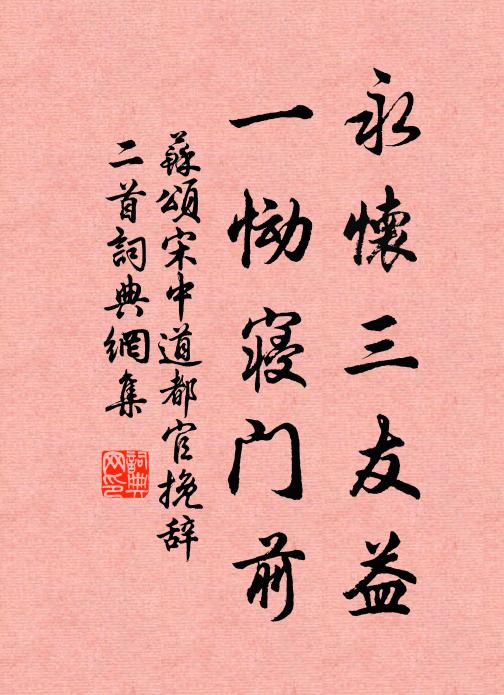 永懷三友益
一恸寢门前
蘇頌宋中道都官挽辞
二首詞典網集
詞典网印